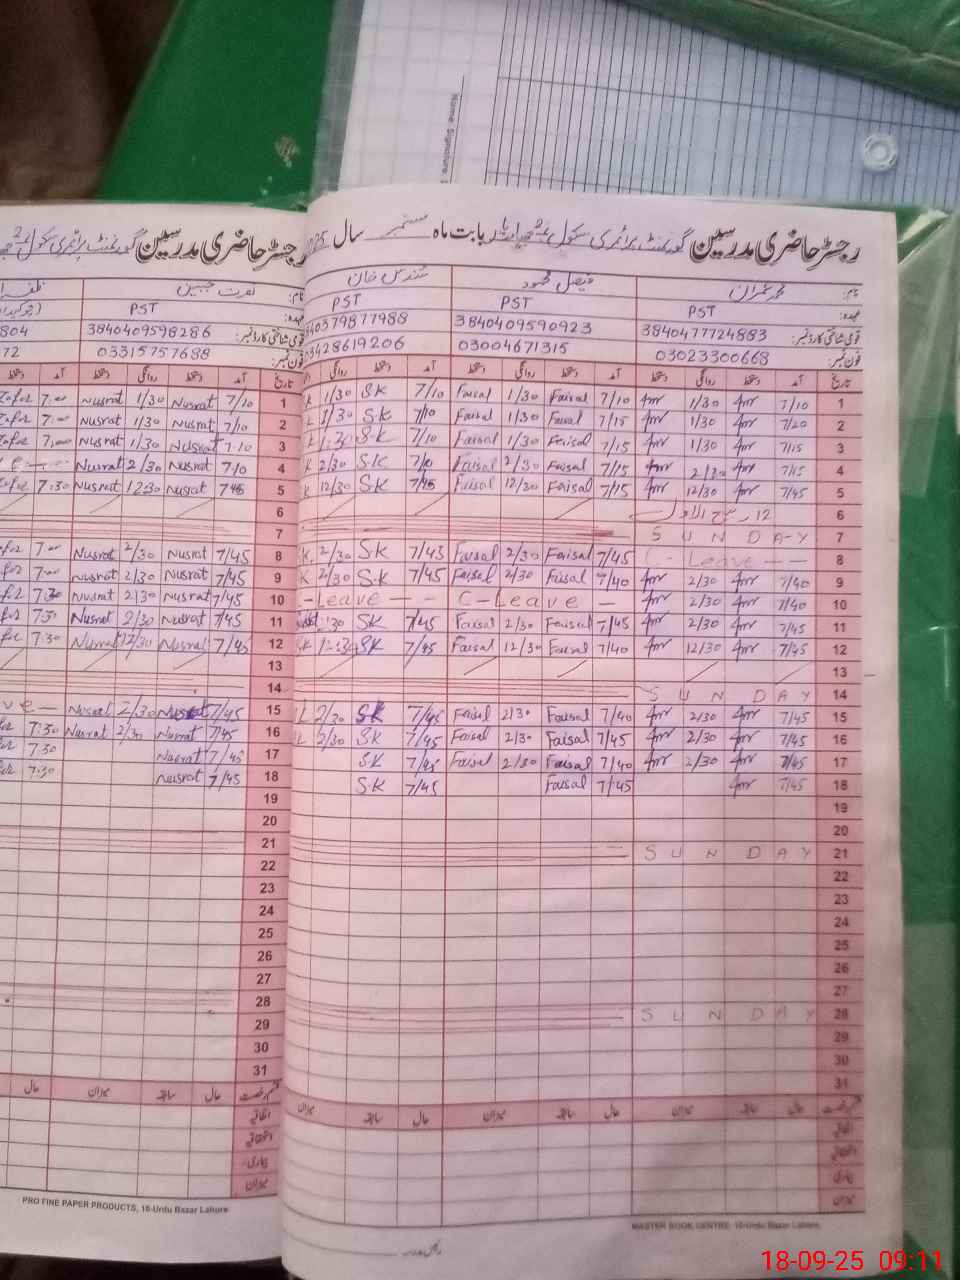 Name Signature
رجسٹر حاضری مدرسین گورنمنٹ پرائمری سکول بابت ماہ ستمبر سال
نام: محمد عمران فیصل محمود
عہدہ: PST PST PST
قومی شناختی کارڈ نمبر: 3840477724883 3840409590923 340379877988
فون نمبر: 03023300668 03004671315 03428619206
تاریخ آمد دستخط روانگی دستخط آمد دستخط روانگی دستخط آمد دستخط روانگی
1 7/10 1/30 7/10 Faisal 1/30 Faisal 7/10 SK 1/30
2 7/20 1/30 7/15 Faisal 1/30 Faisal 7/10 SK 1/30
3 7/15 1/30 7/15 Faisal 1/30 Faisal 7/10 SK 1:30
4 7/15 2/30 7/15 Faisal 2/30 Faisal 7/10 SK 2/30
5 7/45 12/30 7/15 Faisal 12/30 Faisal 7/45 SK 12/30
6 12 ربیع الاول
7 SUNDAY
8 C-Leave 7/45 Faisal 2/30 Faisal 7/45 S.K 2/30
9 7/40 2/30 7/40 Faisal 2/30 Faisal 7/45 S.K 2/30
10 7/40 2/30 C-Leave C-Leave
11 7/45 2/30 7/45 Faisal 2/30 Faisal 7/45 SK
12 7/45 12/30 7/40 Faisal 12/30 Faisal 7/45 SK
13
14 SUNDAY
15 7/45 2/30 7/40 Faisal 2/30 Faisal 7/45 SK 2/30
16 7/45 2/30 7/45 Faisal 2/30 Faisal 7/45 SK 2/30
17 7/45 2/30 7/40 Faisal 2/30 Faisal 7/45 SK
18 7/45 7/45 Faisal 7/45 SK
19
20
21 SUNDAY
22
23
24
25
26
27
28 SUNDAY
29
30
31
حال سابقہ میزان حال سابقہ میزان حال سابقہ میزان
اتفاقیہ
بیماری
میزان
MASTER BOOK CENTRE, 10-Urdu Bazar Lahore,
رجسٹر حاضری مدرسین گورنمنٹ پرائمری سکول
نام: نصرت جبین
عہدہ: PST
قومی شناختی کارڈ نمبر: 3840409598286 804
فون نمبر: 03315757688 72
تاریخ آمد دستخط روانگی دستخط آمد
1 7/10 Nusrat 1/30 Nusrat
2 7/10 Nusrat 1/30 Nusrat
3 7:10 Nusrat 1/30 Nusrat
4 7/10 Nusrat 2/30 Nusrat
5 7:45 Nusrat 12:30 Nusrat 7:30
6
7
8 7/45 Nusrat 2/30 Nusrat
9 7/45 Nusrat 2/30 Nusrat
10 7/45 Nusrat 2/30 Nusrat 7:30
11 7/45 Nusrat 2/30 Nusrat 7:30
12 7/45 Nusrat 12/30 Nusrat 7:30
13
14
15 7/45 Nusrat 2/30 Nusrat
16 7/45 Nusrat 2/30 Nusrat 7:30
17 7/45 Nusrat 7:30
18 7/45 Nusrat 7:30
19
20
21
22
23
24
25
26
27
28
29
30
31
حال سابقہ میزان حال
اتفاقیہ
بیماری
میزان
PRO FINE PAPER PRODUCTS, 10-Urdu Bazar Lahore
18-09-25 09:11